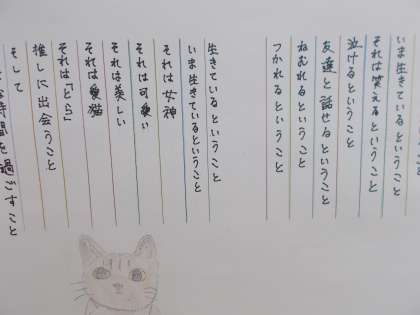 いま生きているということ
それは笑えるということ
泣けるということ
友達と話せるということ
ねむれるということ
つかれるということ
生きているということ
いま生きているということ
それは女神
それは可愛い
それは美しい
それは愛猫
それは「とら」
推しに出会うこと
そして
な時間を過ごすこと